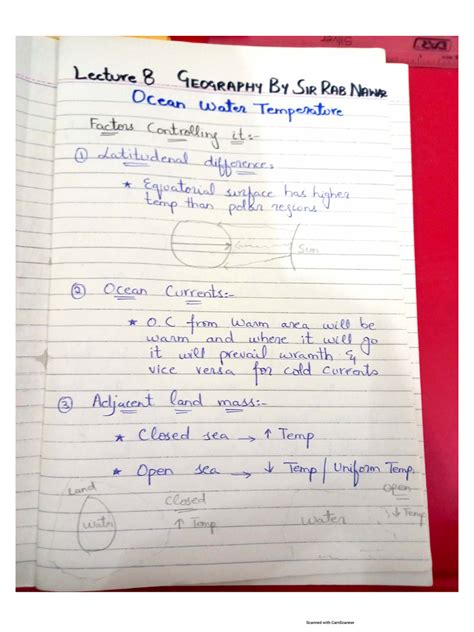 Lecture 8 GEOGRAPHY By SIR RAB NAWAZ
Ocean Water Temperature
Factors Controlling it:-
① Latitudenal difference:
★ Equatorial surface has higher
temp than polar regions
Sun
② Ocean Currents:-
★ O.C from warm area will be
warm and where it will go
it will prevail wramth &
vice versa for cold currents
③ Adjacent land mass:-
★ Closed sea → ↑ Temp
★ Open sea → ↓ Temp / Uniform Temp.
Land
Closed
Open
Water
↑ Temp
Water
↓ Temp
Scanned with CamScanner